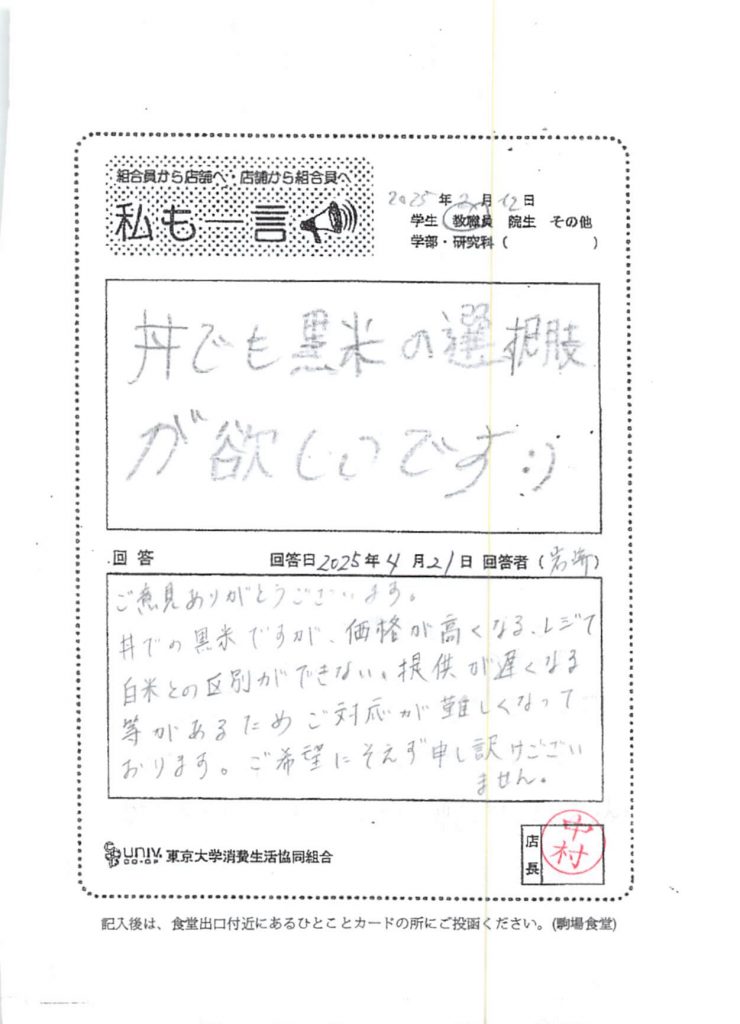 組合員から店舗へ・店舗から組合員へ
私も一言
2025年 月12日
学生 教職員 院生 その他
学部・研究科( )
丼でも黒米の選択肢
が欲しいです:)
回答 回答日2025年4月21日 回答者(岩崎)
ご意見ありがとうございます。
丼での黒米ですが、価格が高くなる、レジで
白米との区別ができない、提供が遅くなる
等があるためご対応が難しくなって
おります。ご希望にそえず申し訳けござい
ません。
UNIV. CO-OP 東京大学消費生活協同組合
店長 中村
記入後は、食堂出口付近にあるひとことカードの所にご投函ください。(駒場食堂)